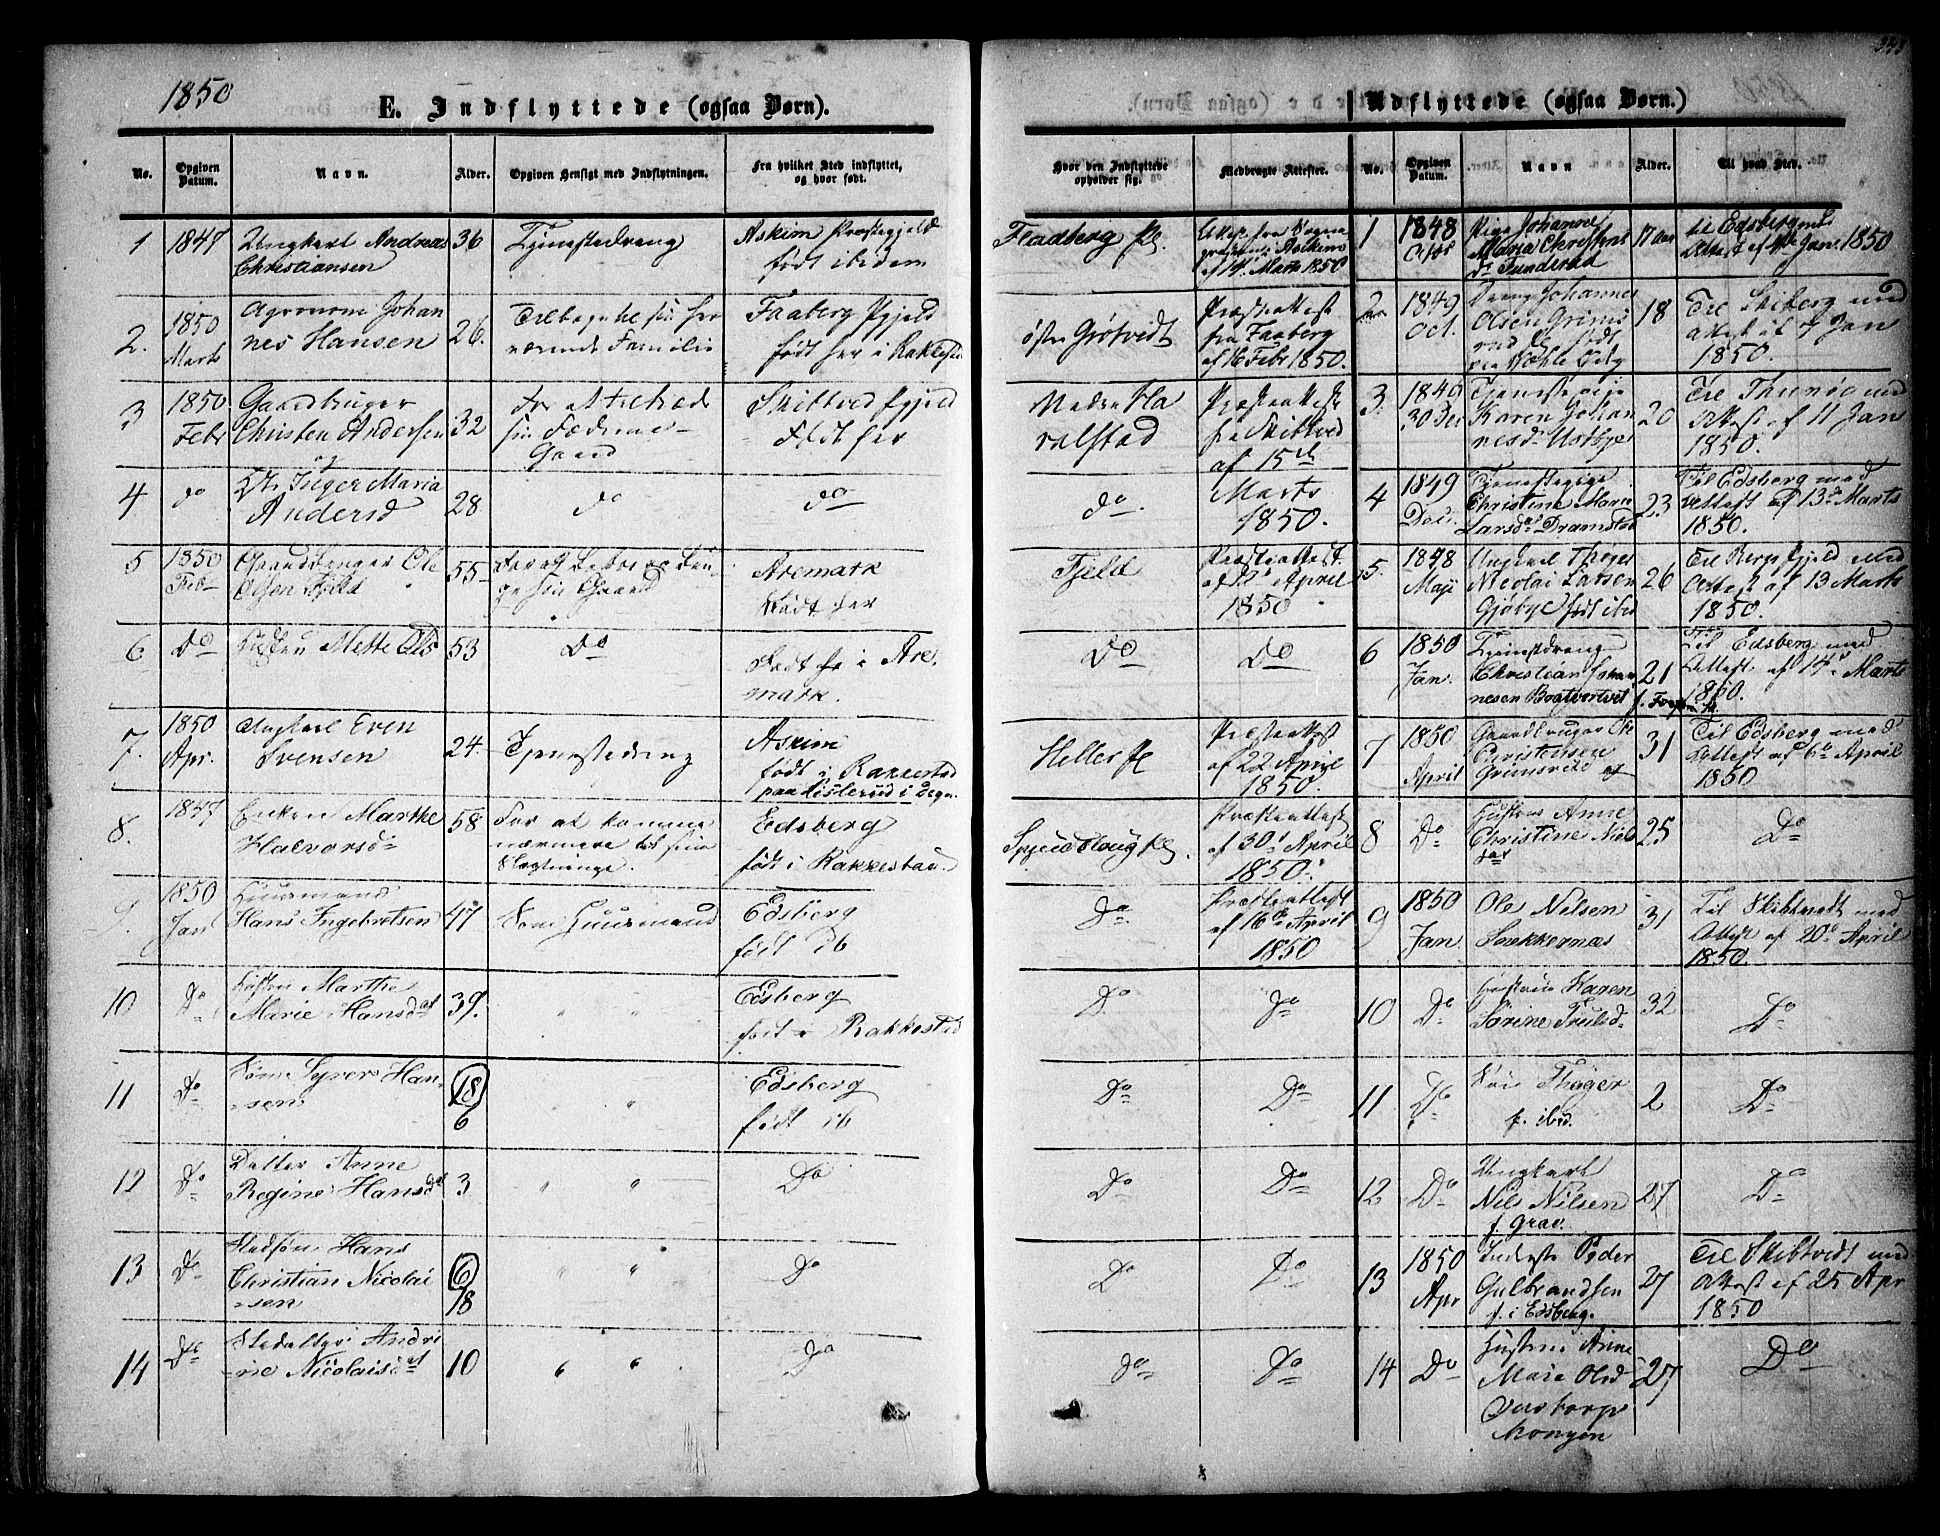 343
1850
E. Indflyttede (ogsaa Børn).
No.
Opgiven Datum.
Navn.
Alder.
Opgiven Hensigt med Indflytningen.
Fra hvilket Sted indflyttet, og hvor født.
Hvor den Indflyttede opholder sig.
Medbragte Attester.
1
1847
Ungkarl Andreas
Christiansen
36
Tjenestedreng
Askim Præstegjeld
født ibidem
af 14 Marts 1850
2.
1850
Marts
Agronom Johan
nes Hansen
26.
Faaberg Pgjeld
født her i Rakkestad
østre Grøtvedt
Præsteattest
fra Faaberg
af 16 Febr 1850.
3
1850
Febr
Gaardbruger
Christen Andersen
32
Skibtved Pgjeld
Født her
Præsteattest
fra Skibtved
af 15de
Marts
1850.
4
do
Inger Maria
Andersd
28
do
do
do.
5
1850
Feb
Gaardbruger Ole
Olsen Fjeld
55
Aremark
Født her
Fjeld
Præsteattest
April
1850
6
Do
Mette Ols
53
Do
Født her i Are
mark.
Do
Do
7.
1850
Apr.
Ungkarl Even
Svensen
24.
Tjenestedreng
Askim
født i Rakkestad
Præsteattest
af 22 April
1850.
8.
1847
Enken Marthe
Halvorsd
58
For at komme
nærmere til sine
Slægtninge.
Edsberg
født i Rakkestad
Præsteattest
af 30d April
1850.
9.
1850
Jan
Huusmand
Hans Ingebretsen
47
Som Huusmand
Edsberg
født ib
Do
Præsteattest
af 16de April
1850
10
Do
Marthe
Marie Hansdat
39.
" "
Edsberg
født i Rakkestad
Do
Do
11
Do
Søn Syver Han-
sen
18
6
"
Edsberg
født ib
Do
Do
12
Do
Datter Anne
Regine Hansdat
3
" "
Do
Do
Do
13
Do
Stedsøn Hans
Christian Nicolai
sen
6
18
" "
Do
Do
Do
14
Do
Steddatter Andri
ne Nicolaisdat
10
" "
Do
Do
Do
Udflyttede (ogsaa Børn.)
No.
Opgiven Datum.
Navn
Alder.
Til hvad Sted.
1
1848
Pige Johanne
Maria Christens
17 Aar
til Edsberg med
Attest af Jan. 1850
2
1849
Oct.
Dreng Johannes
Olsen Grims
rud
18
Til Skiberg med
Attest af Jan
1850.
3.
1849
30 Dec
Tjenestepige
Karen Johan
nesd
20
Til Thunøe med
Attest af 11 Jan
1850.
4
1849
Dec.
Tjenestepige
Christine Marie
Larsd Dramstad
23
Til Edsberg med
Attest af 13d Marts
1850.
5.
1848
Maji
Ungkarl Thøger
Nicolai Larsen
Gjøbye født ibid
26
Til Berg Pgjeld med
Attest af 13 Marts
1850.
6
1850
Jan.
Tjenestdreng
Christian Johan
nesen
21
Til Edsberg med
Attest af 14d Marts
1850.
7
1850
April
Gaardbruger Ole
Christensen
31
Til Edsberg med
Attest af 6te April
1850
8
Do
Hustru Anne
Christine Niels
dat
25
Do
9
1850
Jan.
Ole Nilsen
31
Til Skibtvedt med
Attest af 20d April
1850.
10
Do
Hustrue Karen
Sørine Truelsd
32
Do
11
Do
Søn Thøger
f. ibid.
2
Do
12
Do
Ungkarl
Nils Nilsen
27
Do
13
1850
Apr
Inderste Peder
Gulbrandsen
f. i Edsberg.
27
Til Skibtvedt med
Attest af 25 Apr
1850
14
Do
Hustru Anne
Marie Olsd
27
Do